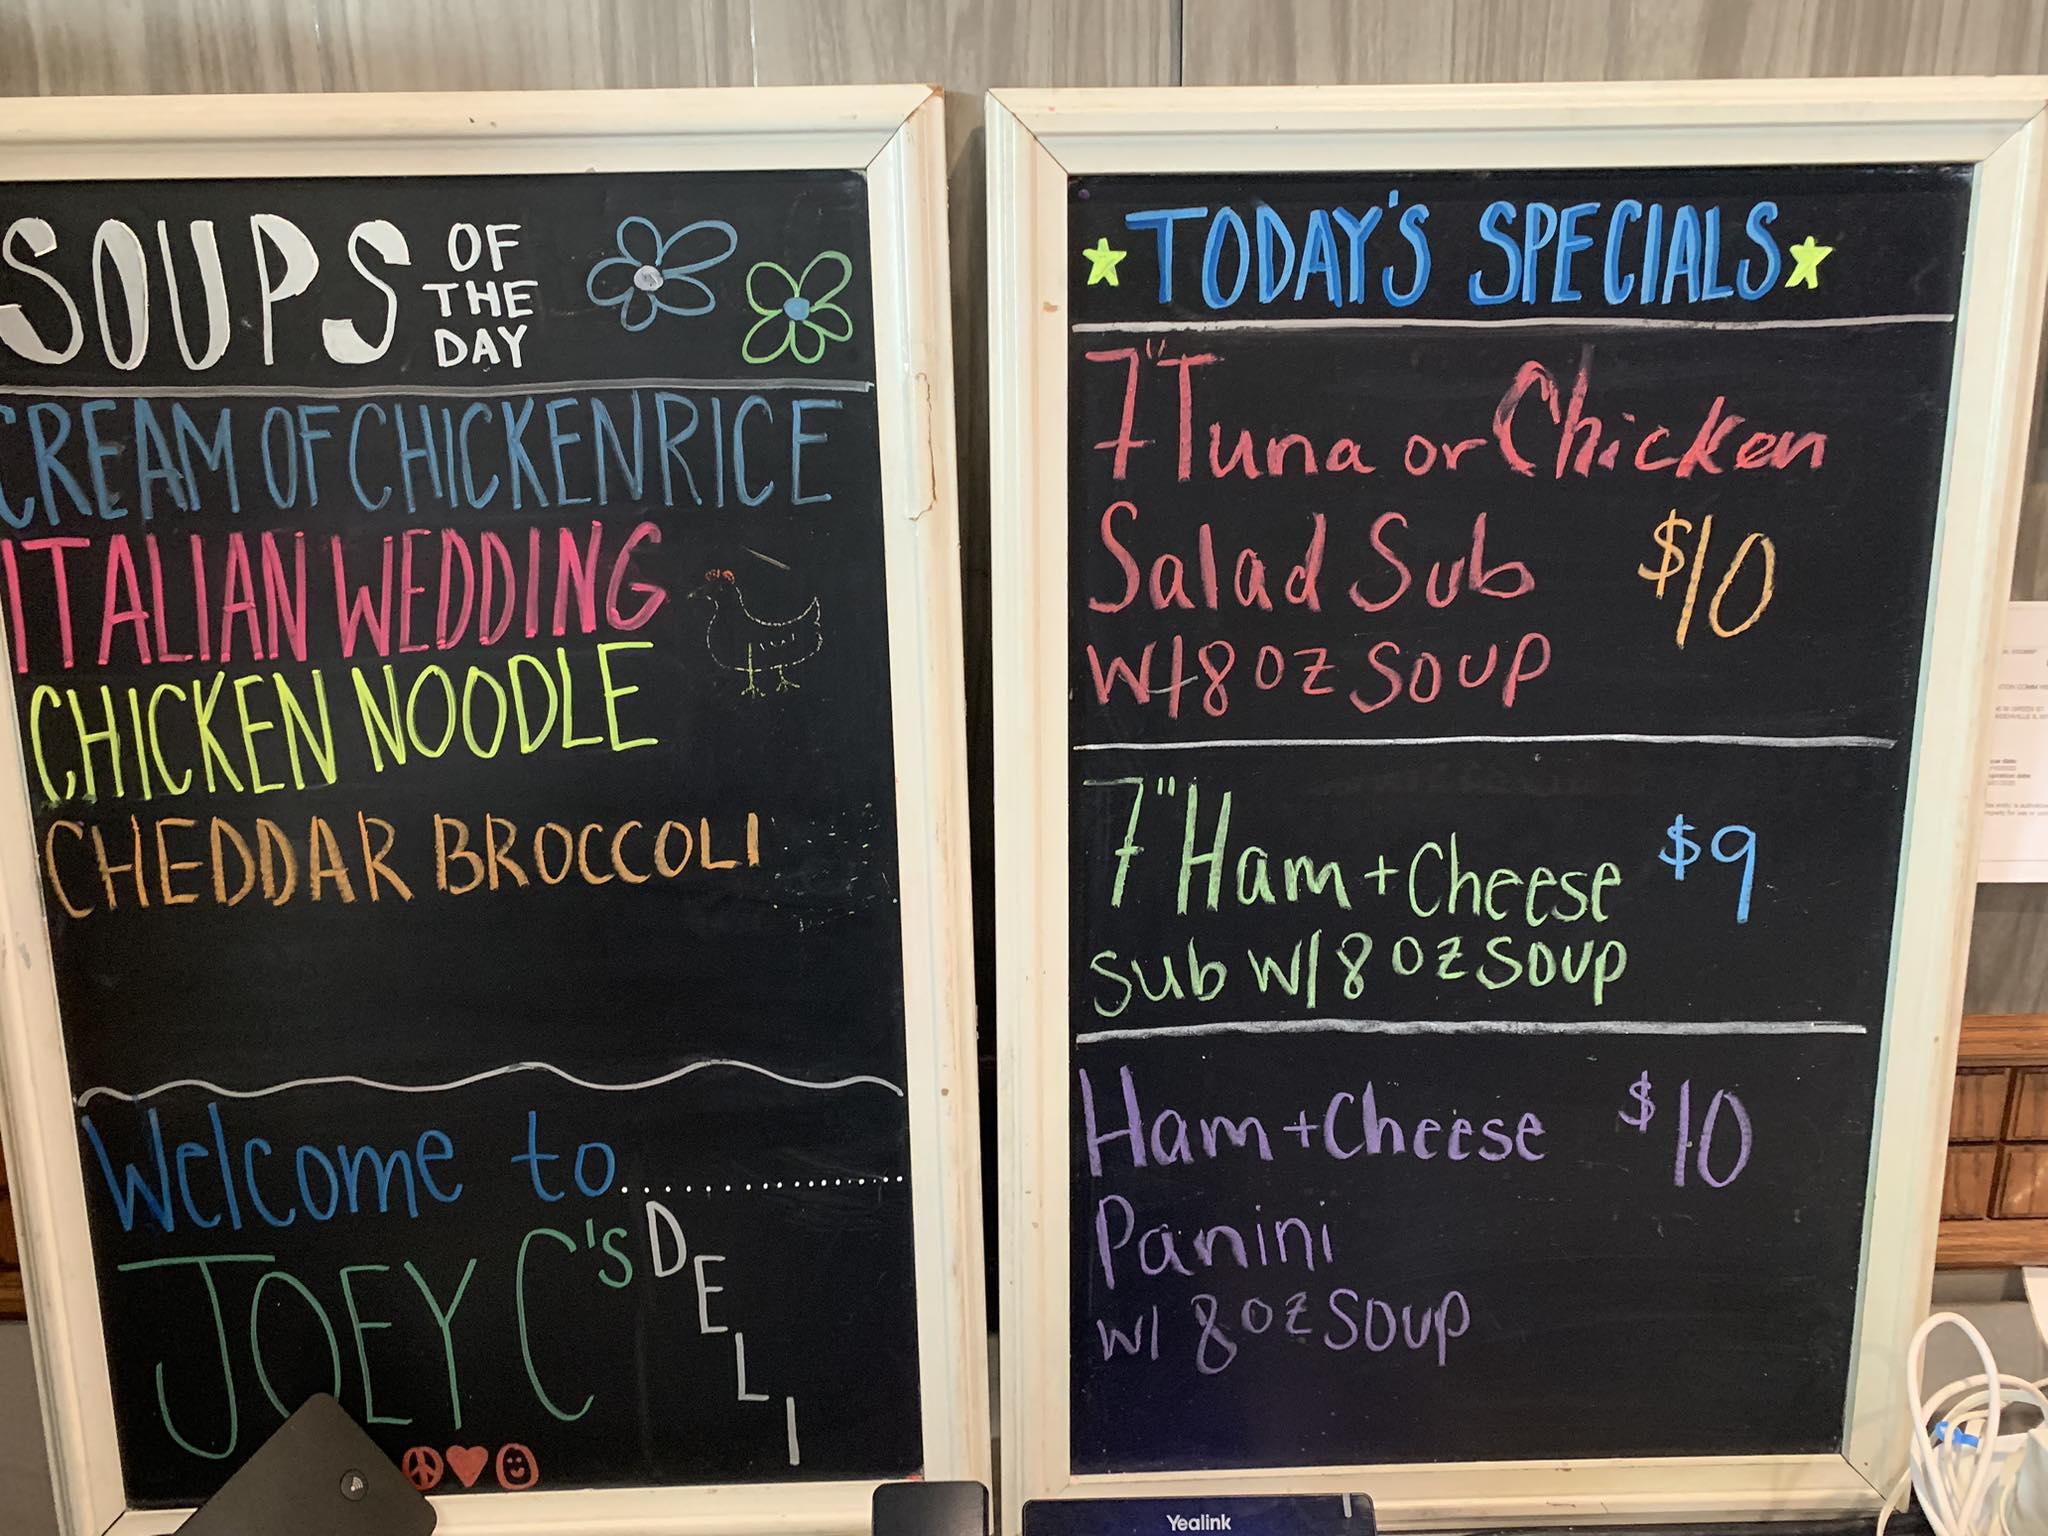 SOUPS OF THE DAY
CREAM OF CHICKEN RICE
ITALIAN WEDDING
CHICKEN NOODLE
CHEDDAR BROCCOLI
Welcome to..................
JOEY C'S DELI
★ TODAY'S SPECIALS ★
7" Tuna or Chicken
Salad Sub $10
W/8 OZ SOUP
7" Ham + Cheese $9
Sub W/8 OZ SOUP
Ham + Cheese $10
Panini
W/ 8 OZ SOUP
Yealink